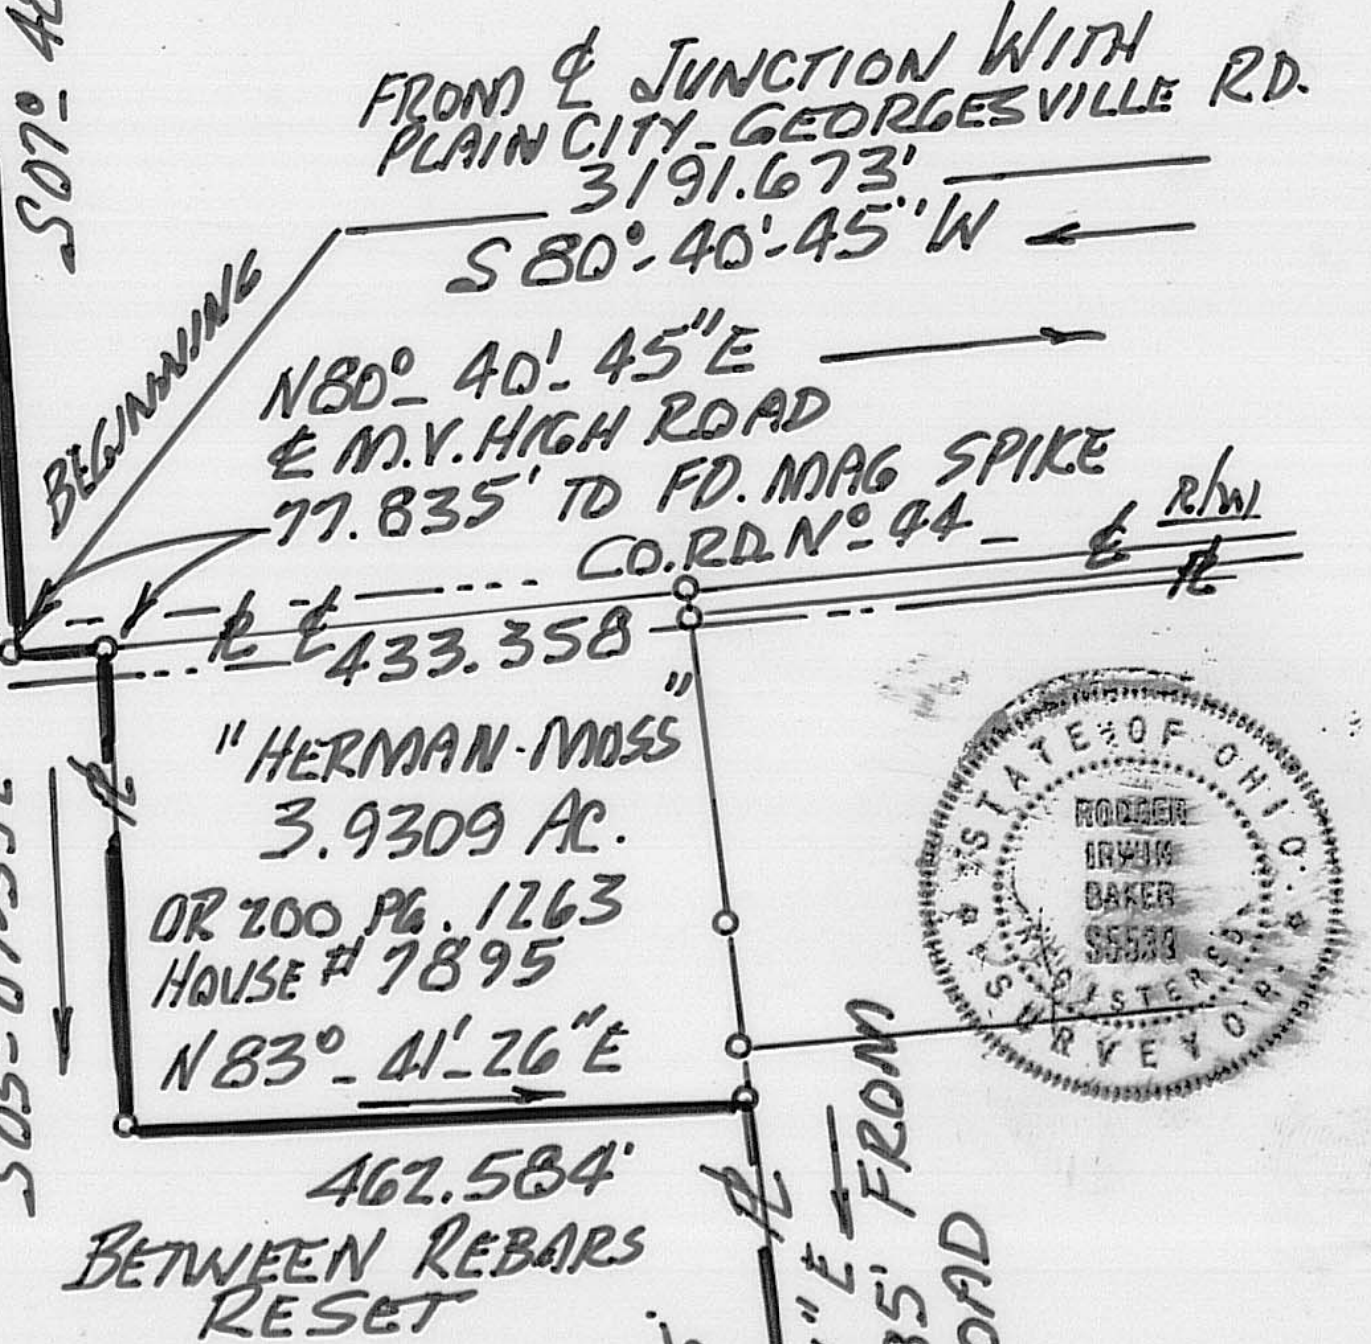 S07°- 4
FROM ℄ JUNCTION WITH
PLAIN CITY-GEORGESVILLE RD.
3191.673'
S 80°-40'-45"W
BEGINNING
N80°- 40'- 45"E
℄ M.V. HIGH ROAD
77.835' TO FD. MAG SPIKE
CO.RD.Nº 44 ℄ R/W
℄ 433.358
"HERMAN-MOSS"
3.9309 AC.
OR 200 PG. 1263
HOUSE # 7895
N 83°- 41'- 26"E
462.584'
BETWEEN REBARS
RESET
STATE OF OHIO
RODGER
IRWIN
BAKER
REGISTERED
SURVEYOR
"E
FROM
85'